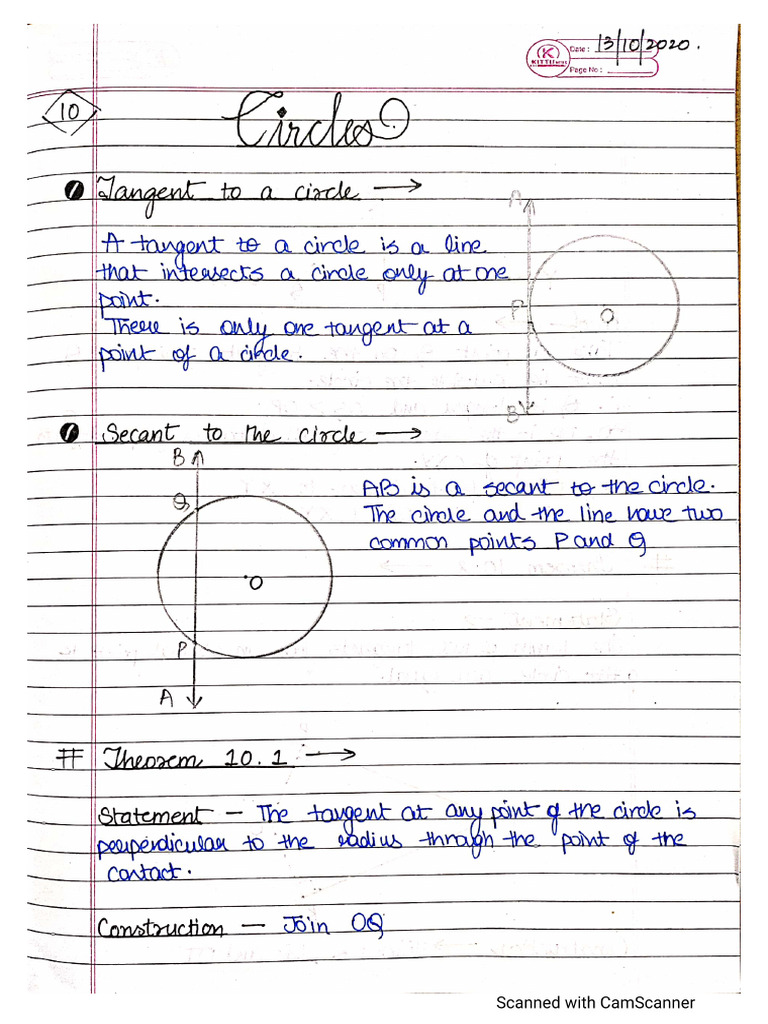 Date : 13/10/2020.
K
KITTU
Page No :
10
Circles
Tangent to a circle →
A
A tangent to a circle is a line
that intersects a circle only at one
point.
P
O
There is only one tangent at a
point of a circle.
B
Secant to the circle →
B
AB is a secant to the circle.
Q
The circle and the line have two
common points P and Q
O
P
A
# Theorem 10.1 →
Statement – The tangent at any point of the circle is
perpendicular to the radius through the point of the
contact.
Construction – Join OQ
Scanned with CamScanner